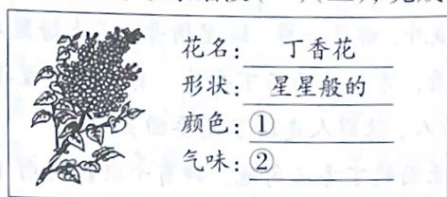 花名：丁香花
形状：星星般的
颜色：①
气味：②